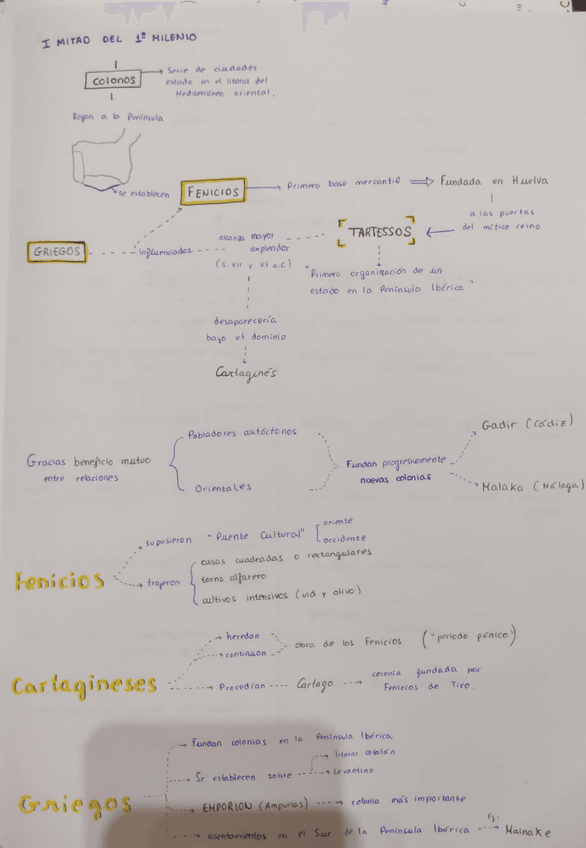 I MITAD DEL 1º MILENIO
COLONOS
Serie de ciudades
estado en el litoral del
Mediterráneo oriental.
llegan a la Península
se establecen
FENICIOS
Primero base mercantil
Fundada en Huelva
a las puertas
del mítico reino
TARTESSOS
"Primera organización de un
estado en la Península Ibérica"
GRIEGOS
influenciados
alcanza mayor
esplendor
(S. VII y VI a.C)
desaparecería
bajo el dominio
Cartaginés
Gracias beneficio mutuo
entre relaciones
Pobladores autóctonos
Orientales
Fundan progresivamente
nuevas colonias
Gadir (Cádiz)
Malaka (Málaga)
Fenicios
supusieron "Puente Cultural"
oriente
occidente
trajeron
casas cuadradas o rectangulares
torno alfarero
cultivos intensivos (vid y olivo)
Cartagineses
heredan
continuan
obra de los Fenicios ("periodo púnico")
Procedían
Cartago
colonia fundada por
Fenicios de Tiro.
Griegos
Fundan colonias en la Península Ibérica
Se establecen sobre
litoral catalán
Levantino
EMPORION (Ampurias)
colonia más importante
asentamientos en el Sur de la Península Ibérica
Ej.
Mainake